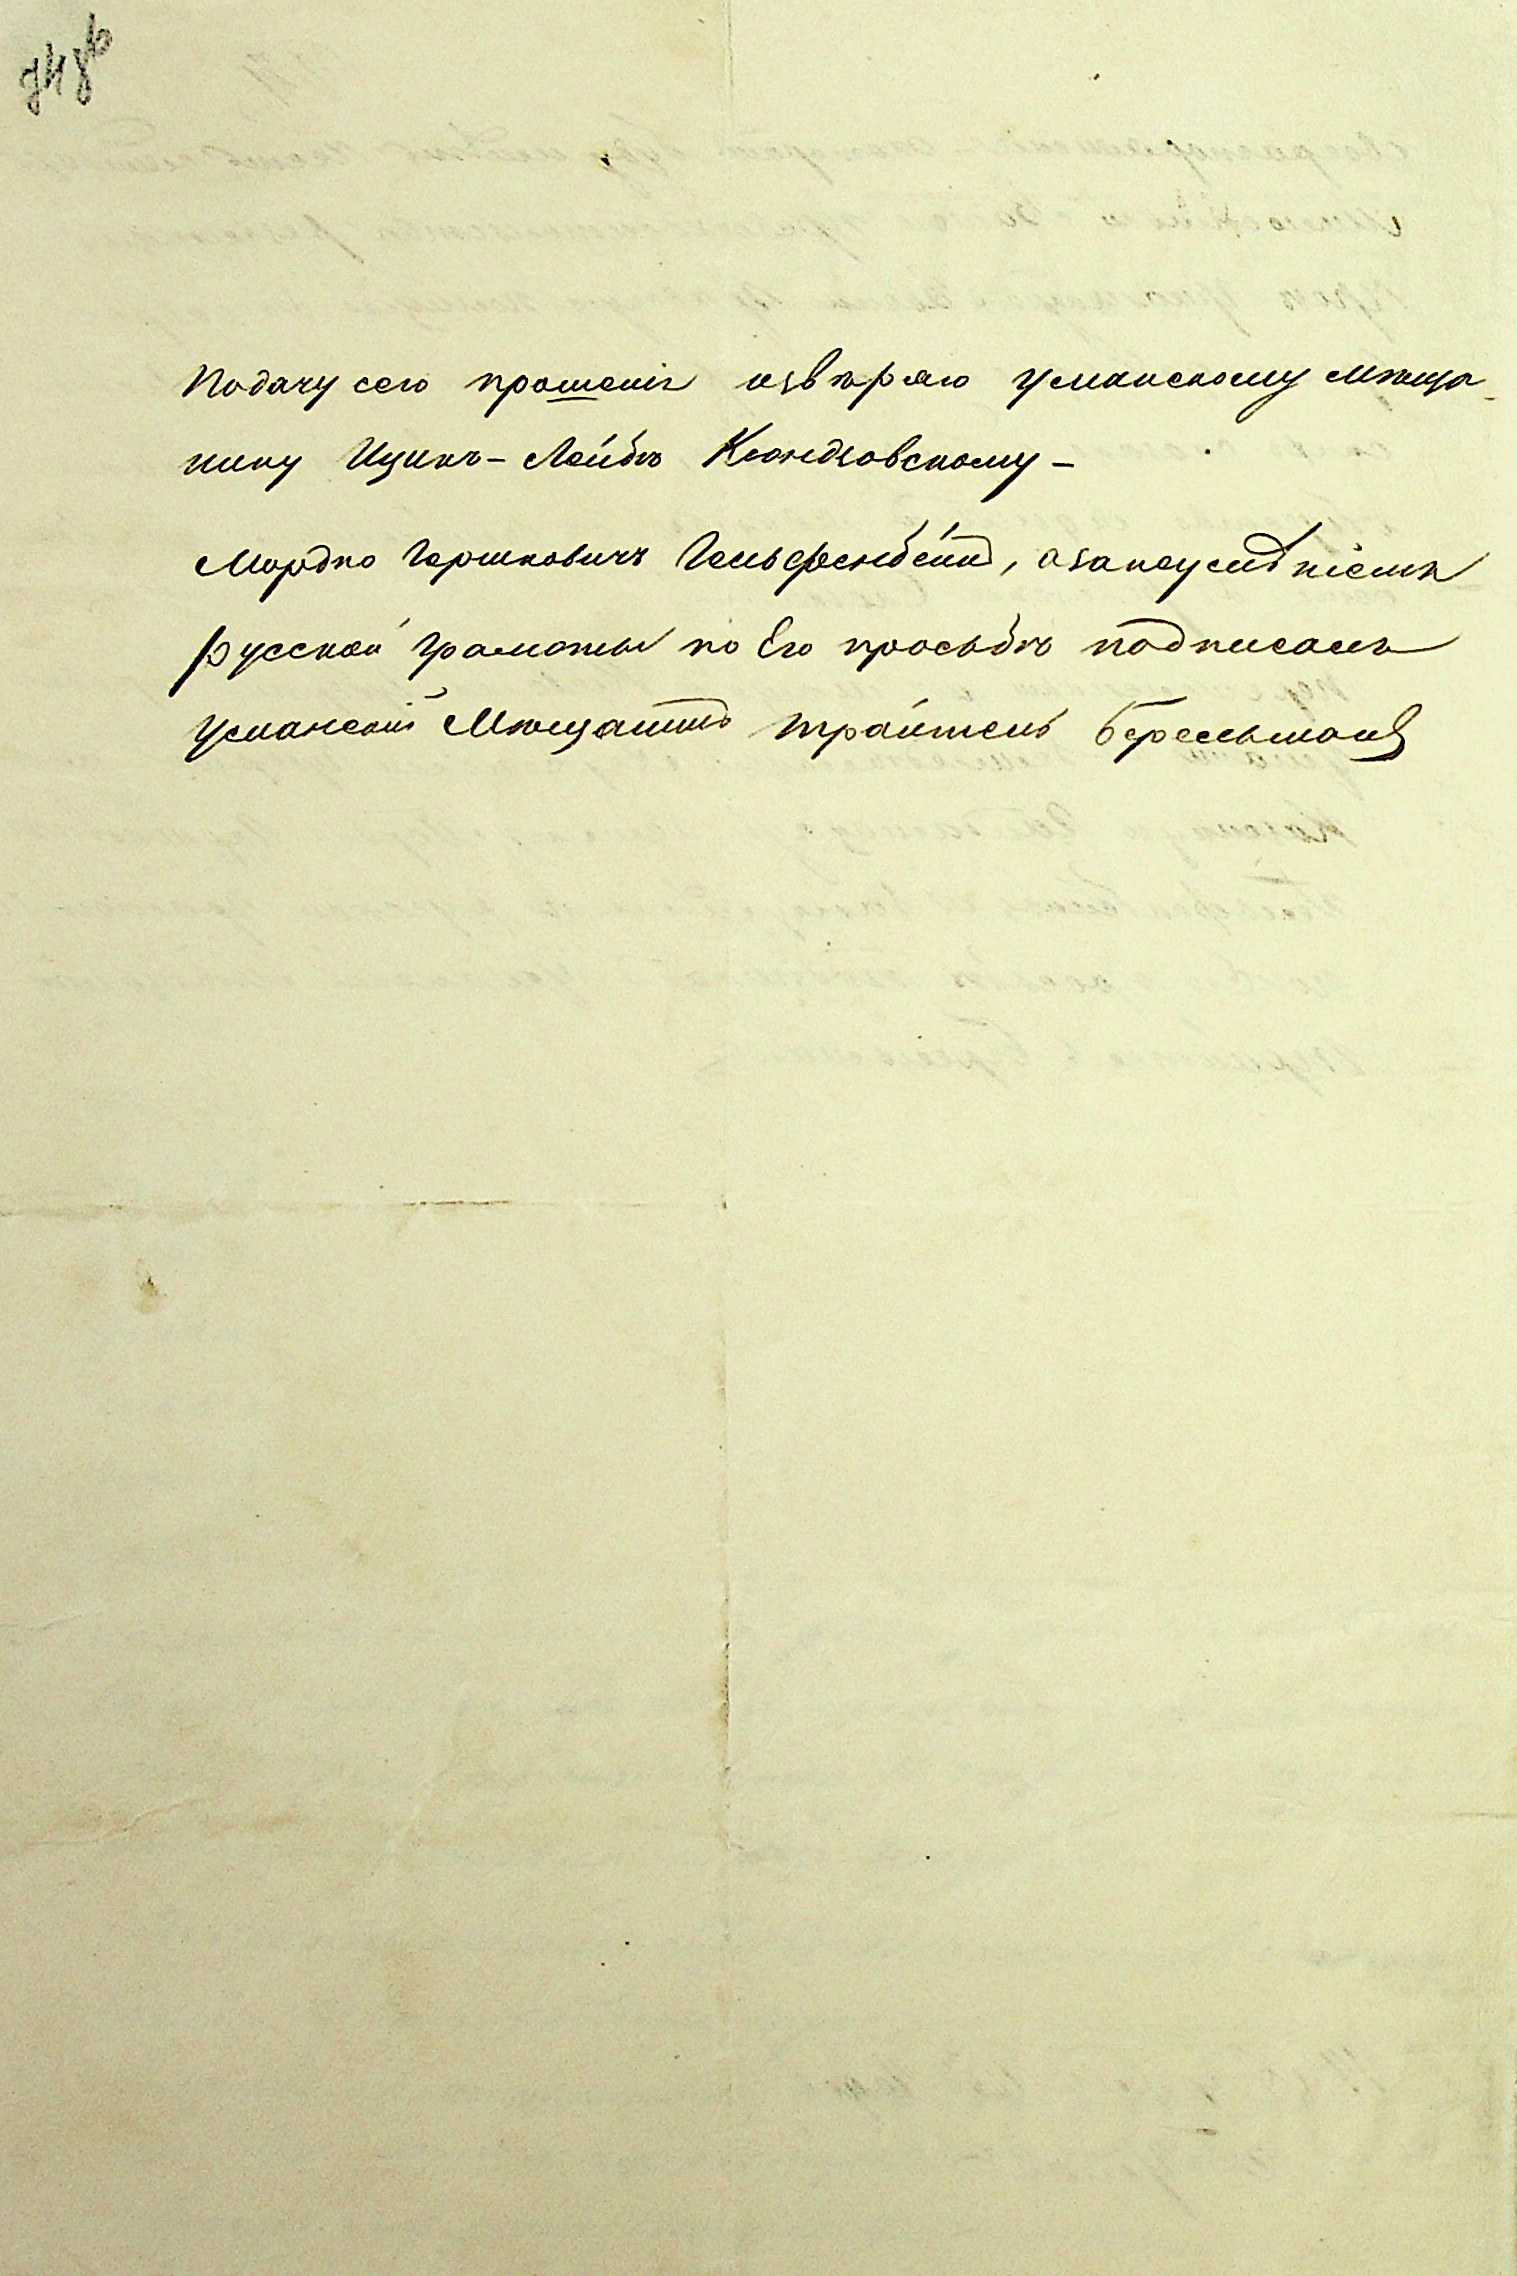 748б
Подачу сего прошенія извѣряю Уманскому мѣща-
нину Ицикъ-Лейбѣ Кюндзовскому -
Мордко Гершковичъ Гельфенбейнъ, а за неумѣніемъ
русской грамоты по Его просьбѣ подписалъ
Уманскій Мѣщанинъ Трайтель Бересьманъ